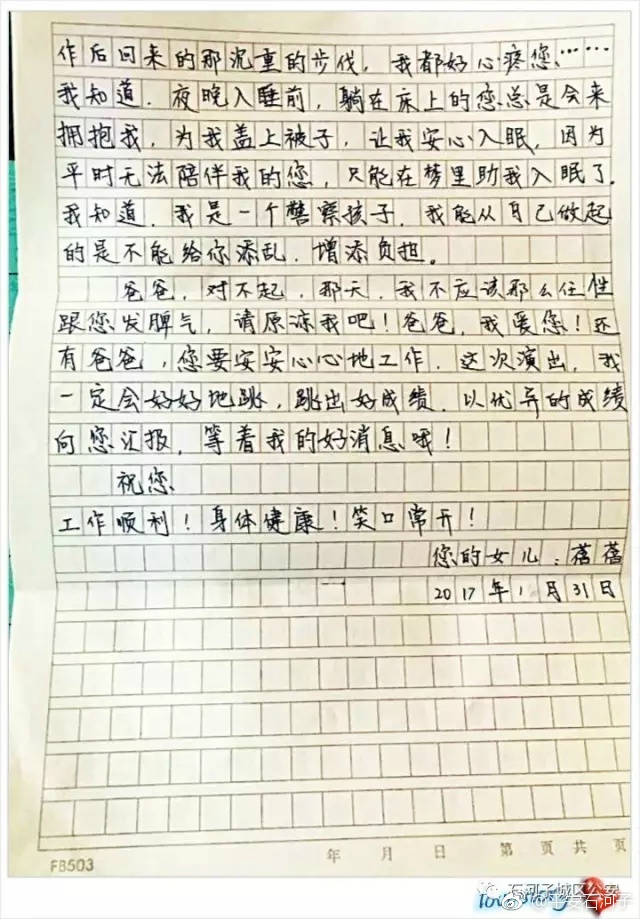 作后回来的那沉重的步伐，我都好心疼您……
我知道．夜晚入睡前，躺在床上的您总是会来
拥抱我，为我盖上被子，让我安心入眠，因为
平时无法陪伴我的您，只能在梦里助我入眠了．
我知道．我是一个警察孩子．我能从自己做起
的是不能给你添乱．增添负担。
爸爸，对不起，那天，我不应该那么任性
跟您发脾气，请原谅我吧！爸爸，我爱您！还
有爸爸，您要安安心心地工作．这次演出，我
一定会好好地跳，跳出好成绩．以优异的成绩
向您汇报，等着我的好消息哦！
祝您
工作顺利！身体健康！笑口常开！
您的女儿：蓓蓓
2017年1月31日
年 月 日 第 页 共 页
FB503
石河子城区公安
@平安石河子